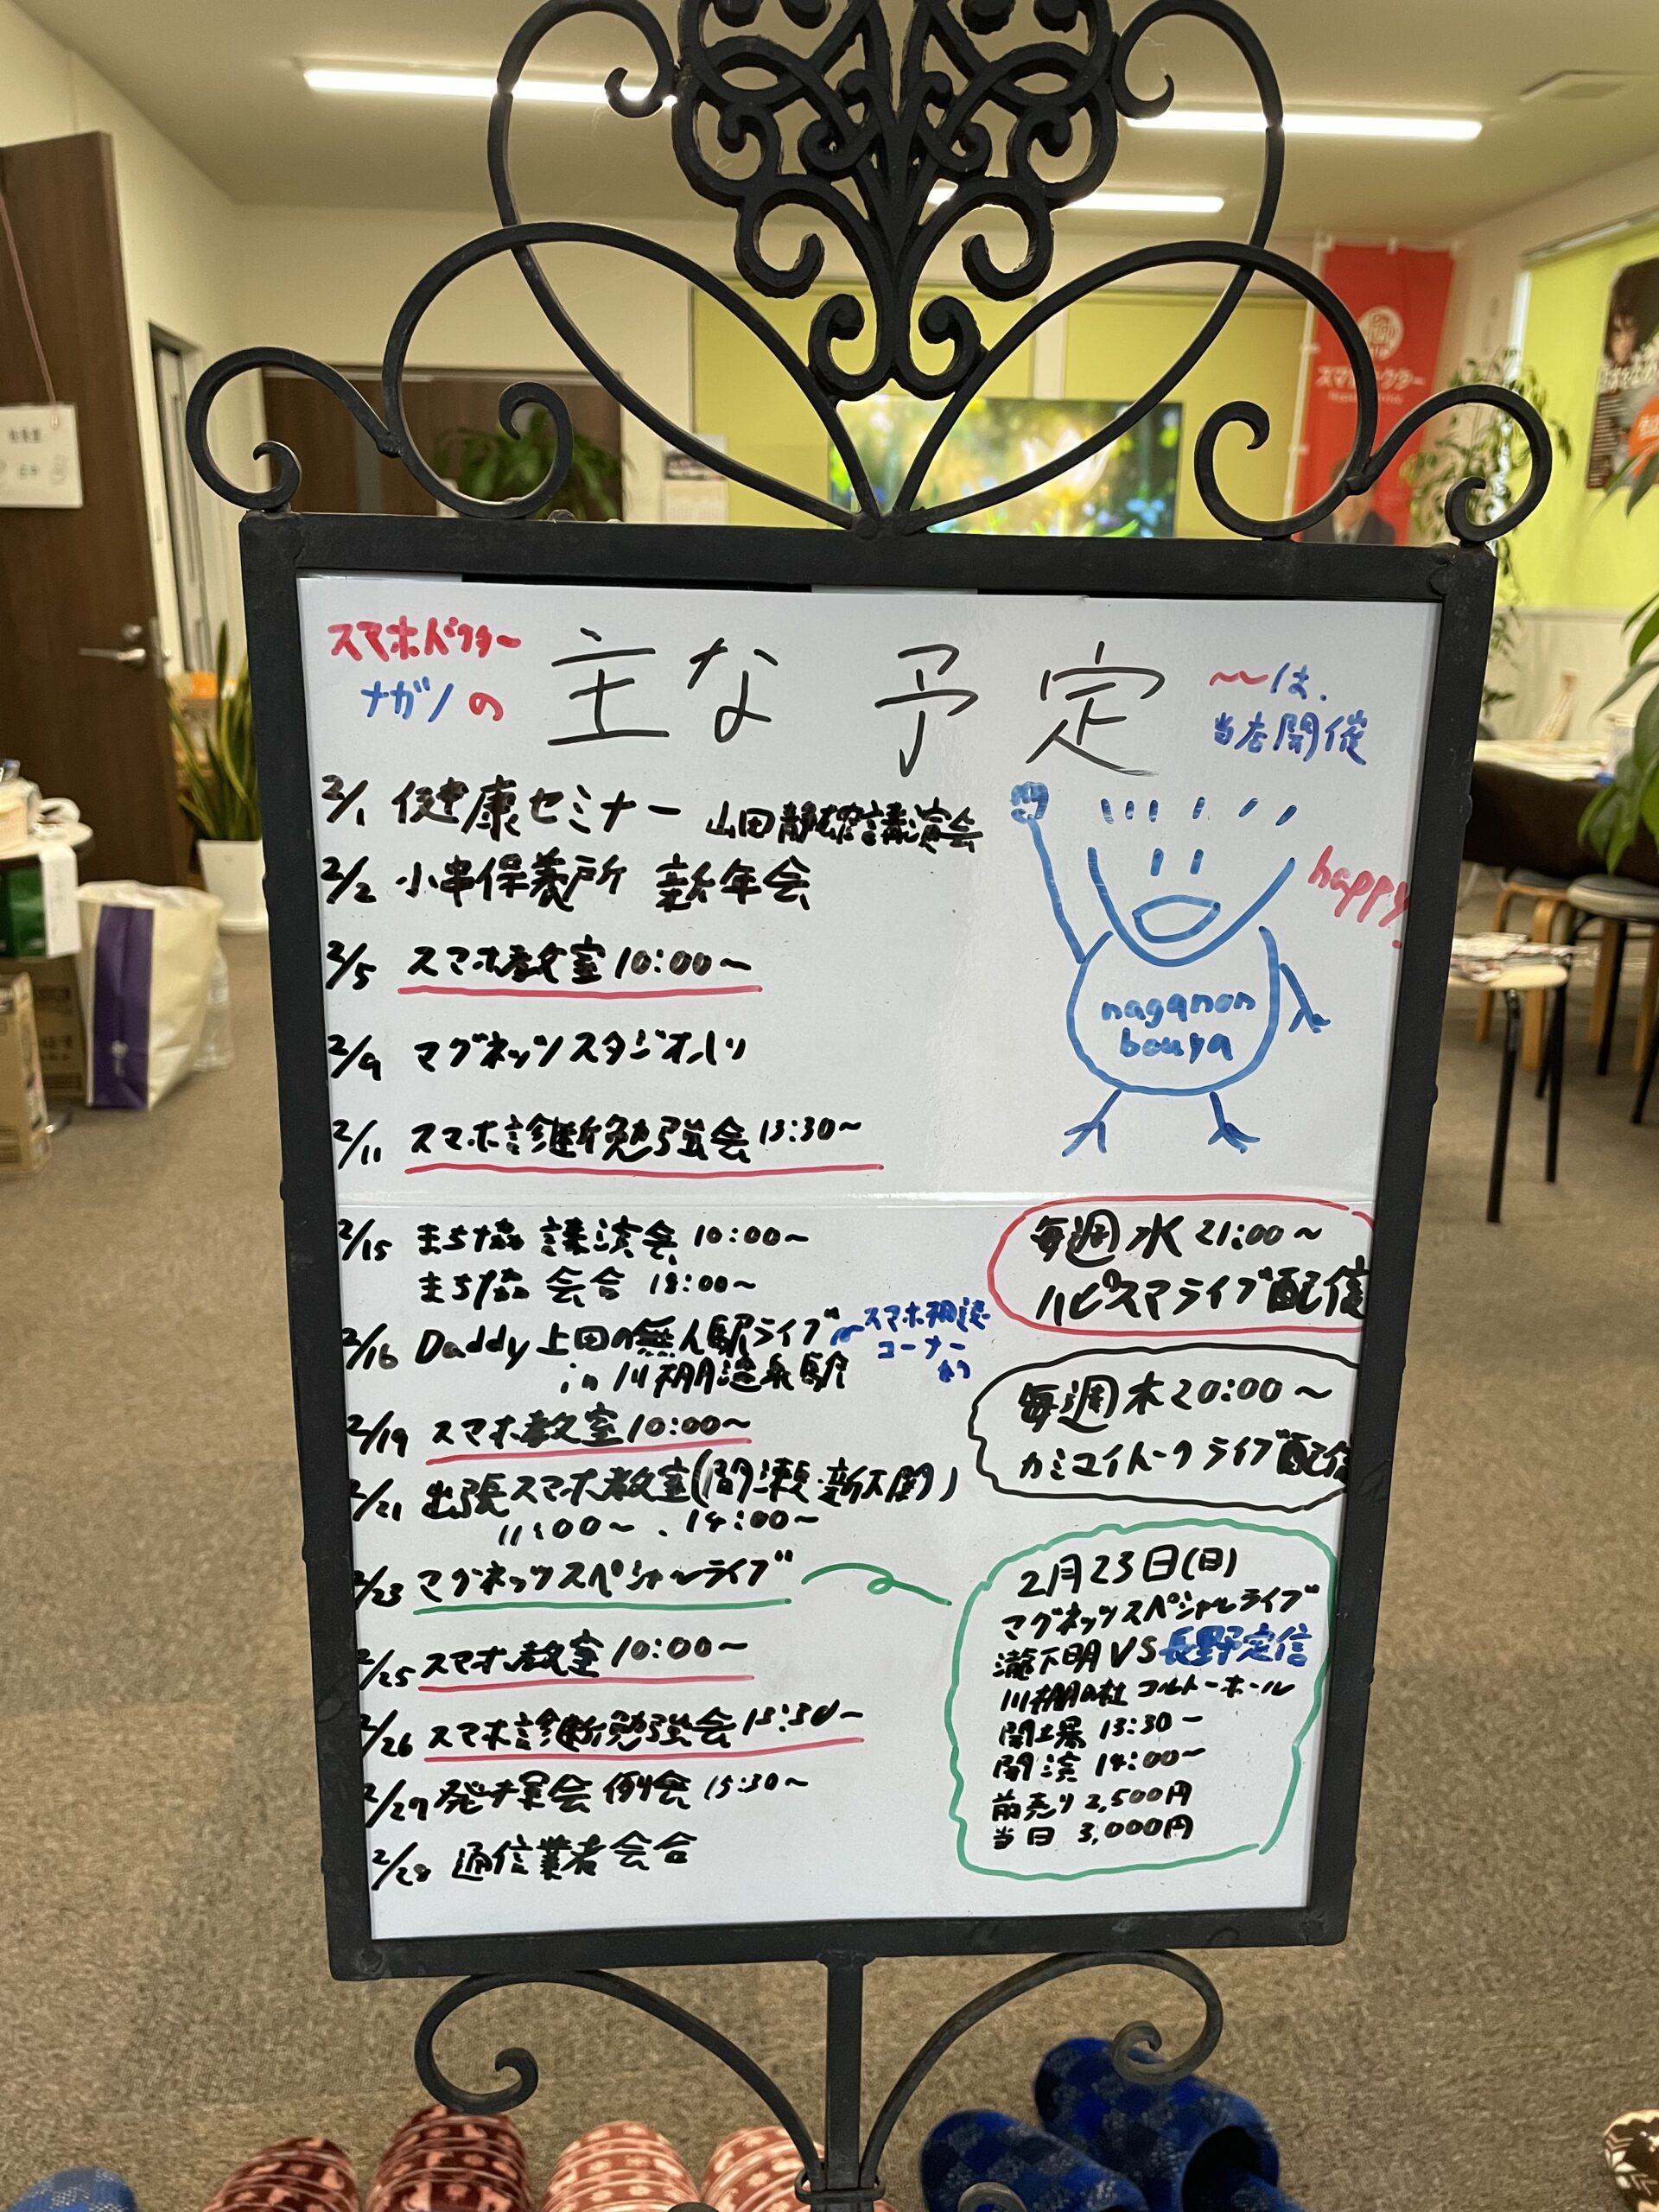 スマホドクター
ナガノの
主な予定
～は、
当店開催
2/1 健康セミナー 山田静雄講演会
2/2 小串保養所 新年会
happy
2/5 スマホ教室 10:00～
naganon
bouya
2/9 マグネッツスタジオ入り
2/11 スマホ診断勉強会 13:30～
2/15 まち協 講演会 10:00～
まち協 会合 18:00～
2/16 Daddy上田の無人駅ライブ
in 川棚温泉駅
スマホ相談
コーナー
有り
2/19 スマホ教室 10:00～
2/21 出張スマホ教室(関
11:00～、14:00～
2/23 マグネッツスペシャルライブ
2/25 スマホ教室 10:00～
2/26 スマホ診断勉強会 13:30～
2/27 例会 15:30～
2/28 通信業者会合
毎週水 21:00～
ハピスマライブ配信
毎週木 20:00～
カミユイトークライブ配信
2月23日(日)
マグネッツスペシャルライブ
瀧下明 VS 長野定信
川棚の杜 コルトーホール
開場 13:30～
開演 14:00～
前売り 2,500円
当日 3,000円
スマホドクター